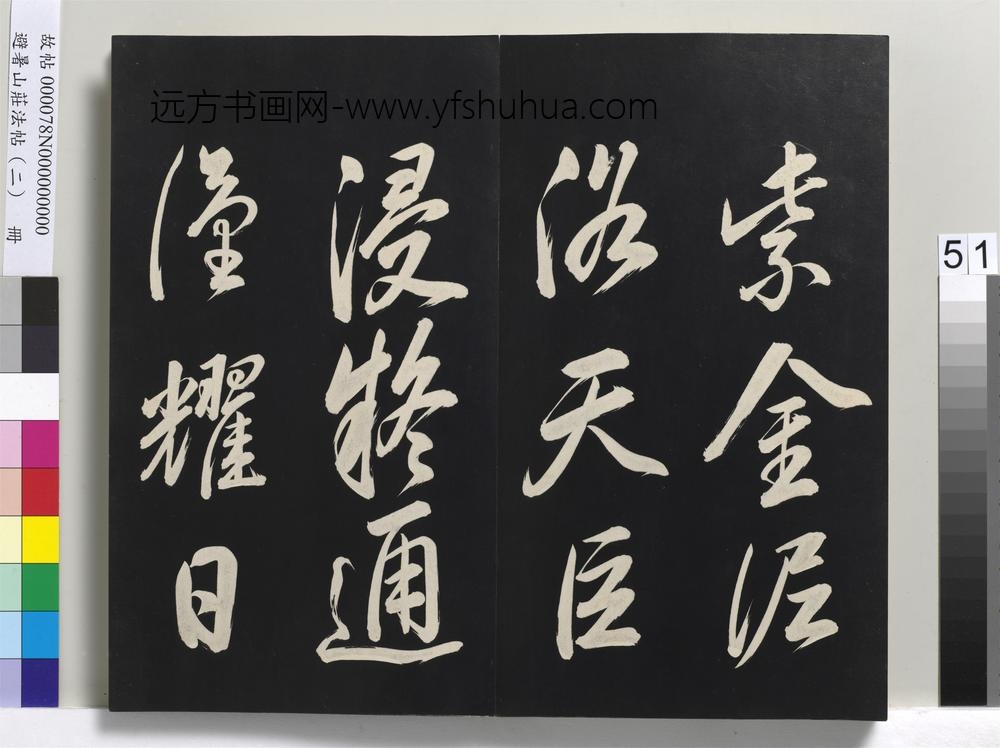 故帖 000078N000000000
避暑山莊法帖（二） 冊
远方书画网-www.yfshuhua.com
51
紫金泥
浴天巨
浸通
漢耀日